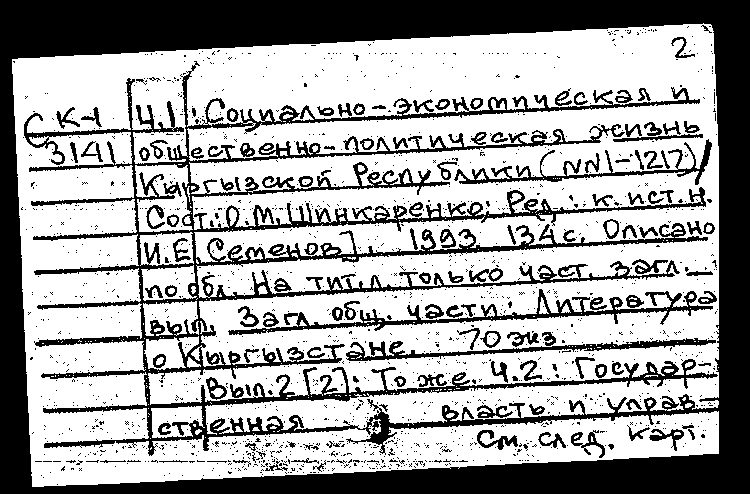 2
К-1 Ч.1: Социально-экономическая и
3141 общественно-политическая жизнь
Кыргызской Республики (NN1-1217)/
Сост.: О.М.Шинкаренко; Ред.: к.ист.н.
И.Е.Семенов]. 1993 134с. Описано
по обл. На тит.л. только част. загл.
вып. Загл. общ. части: Литература
о Кыргызстане. 70 экз.
Вып.2 [2]: То же. Ч.2: Государ-
ственная власть и управ-
См. след. карт.